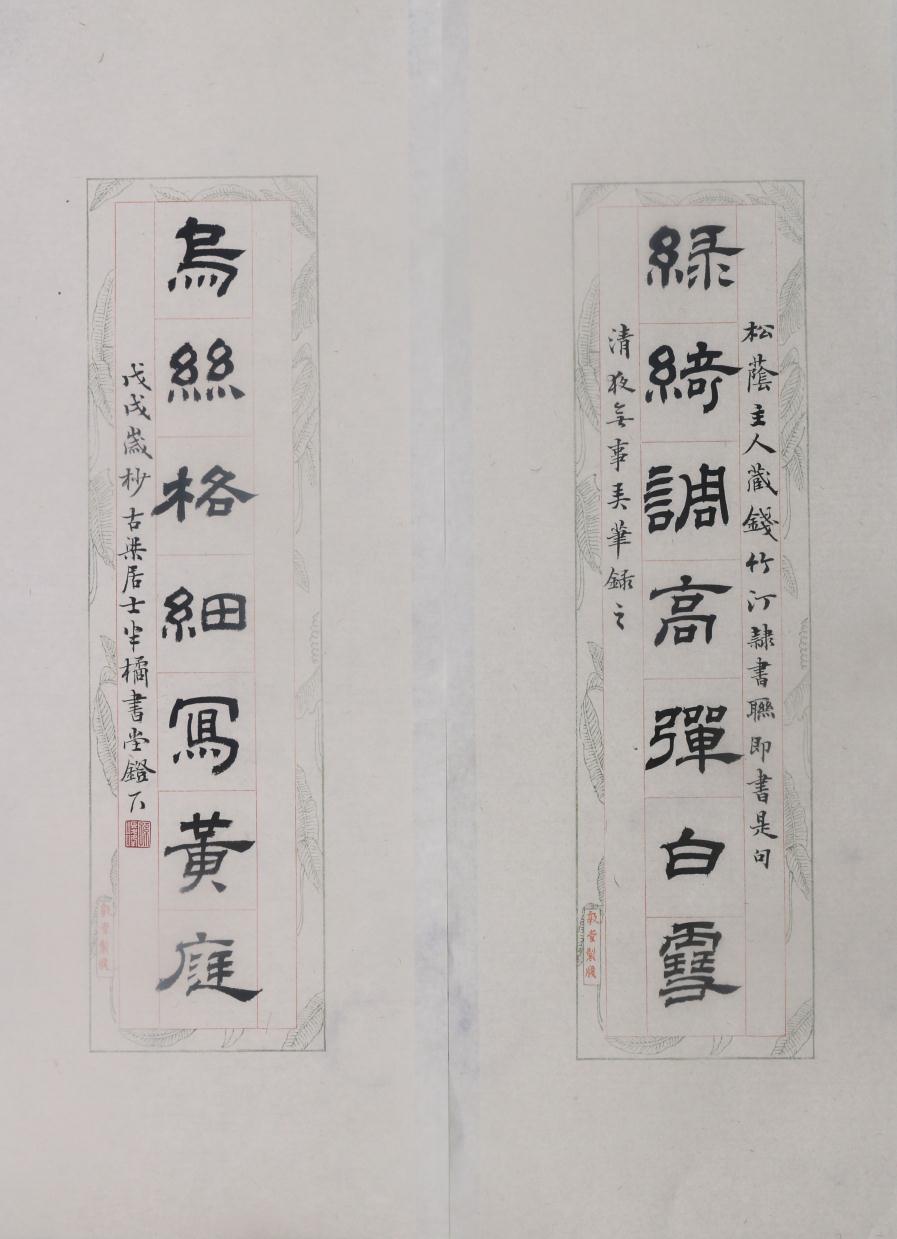 松蔭主人藏錢竹汀隸書聯即書是句
綠綺調高彈白雪
清夜無事弄筆錄之
烏絲格細寫黃庭
戊戌歲杪古梁居士半橘書堂鐙下